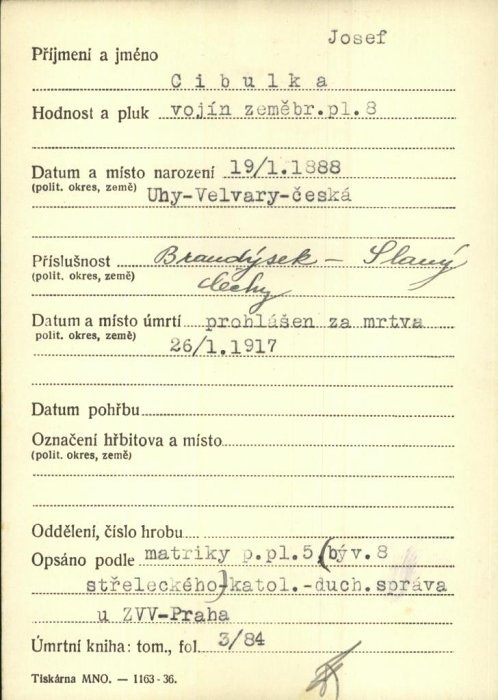 Josef
Příjmení a jméno
Cibulka
Hodnost a pluk vojín zeměbr.pl.8
Datum a místo narození 19/1.1888
(polit. okres, země) Uhy-Velvary-česká
Příslušnost Brandýsek - Slaný
(polit. okres, země) Čechy
Datum a místo úmrtí prohlášen za mrtva
polit. okres, země) 26/1.1917
Datum pohřbu
Označení hřbitova a místo
(polit. okres, země)
Oddělení, číslo hrobu
Opsáno podle matriky p.pl.5 (býv.8
střeleckého) katol.-duch.správa
u ZVV-Praha
Úmrtní kniha: tom., fol. 3/84
Tiskárna MNO. — 1163-36.